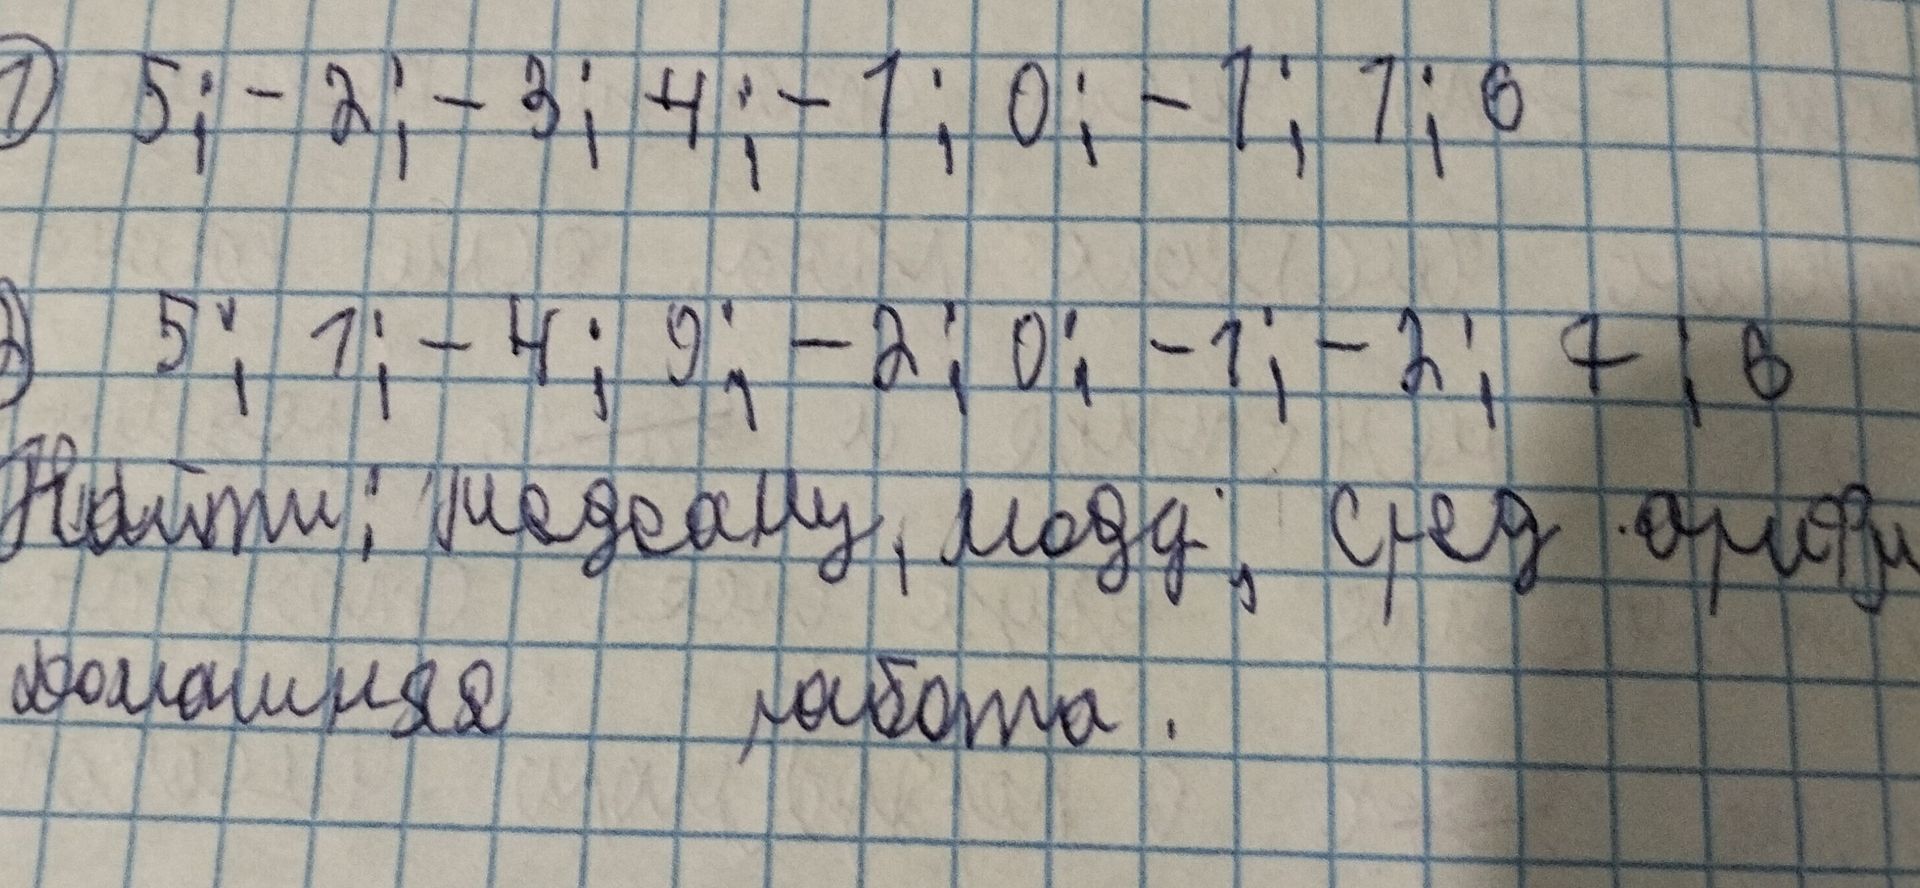 ① 5; -2; -3; 4; -1; 0; -1; 1; 6
② 5; 1; -4; 9; -2; 0; -1; -2; 7; 6
Найти: медеану, моду, сред арифм
домашняя работа.